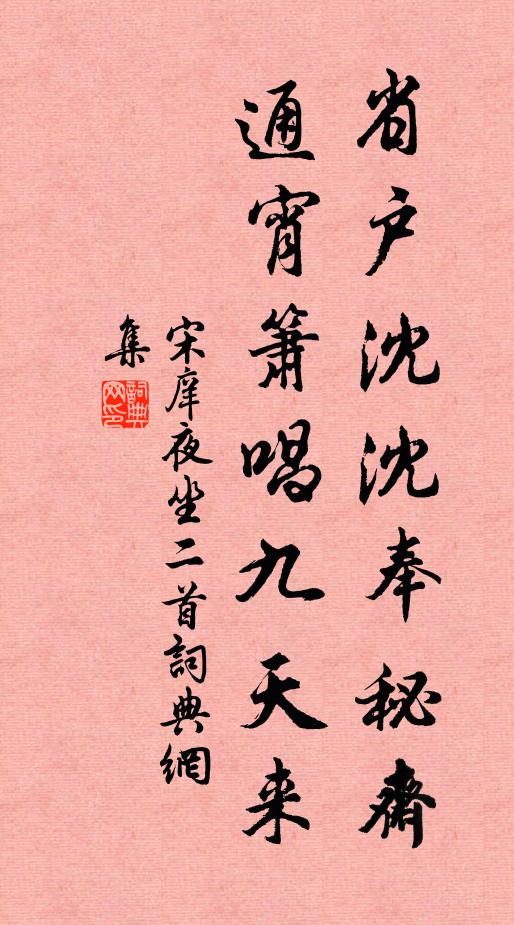 省户沈沈奉秘齋
通宵簫唱九天来
宋庠夜坐二首詞典網
集
詞典网印